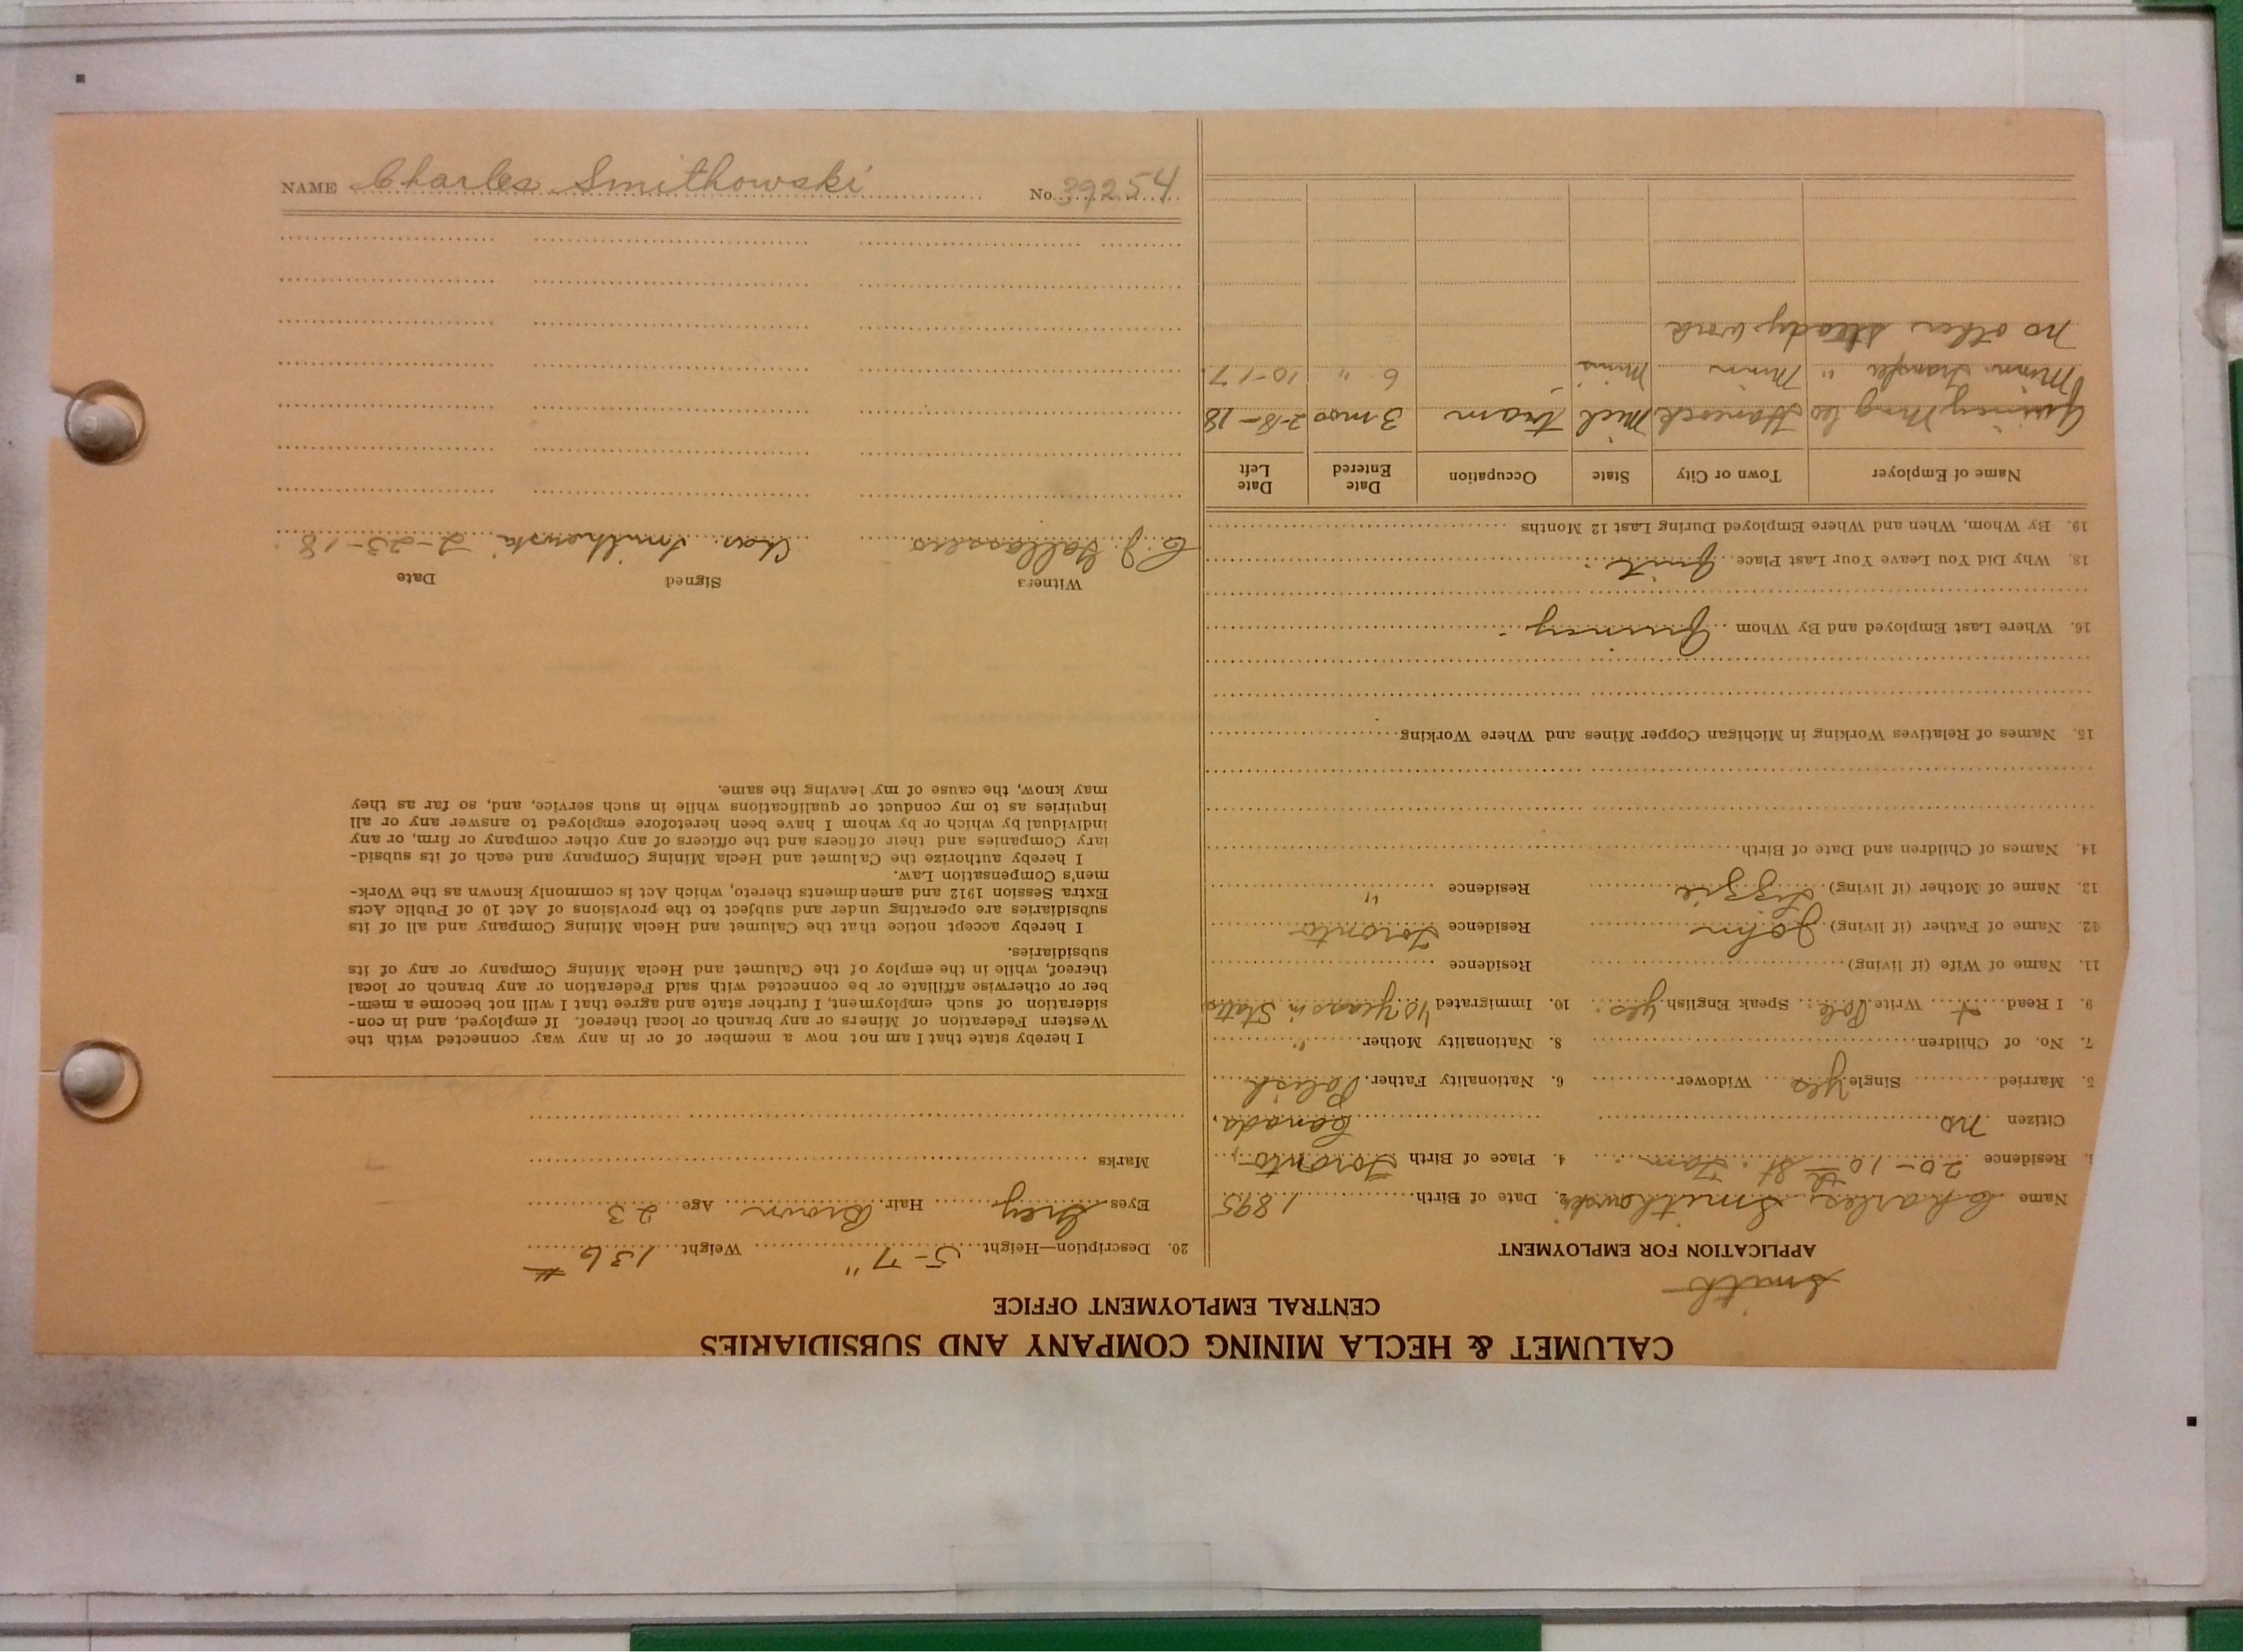 CALUMET & HECLA MINING COMPANY AND SUBSIDIARIES
CENTRAL EMPLOYMENT OFFICE
Smith
APPLICATION FOR EMPLOYMENT
Name Charles Smithowski 2. Date of Birth 1895
3. Residence 20-10th St. Tam. 4. Place of Birth Toronto,
Citizen no Canada.
5. Married Single yes Widower 6. Nationality Father Polish
7. No. of Children 8. Nationality Mother "
9. I Read + Write Pole: Speak English yes: 10. Immigrated 10 years in States
11. Name of Wife (if living) Residence
12. Name of Father (if living) John Residence Toronto
13. Name of Mother (if living) Lizzie Residence "
14. Names of Children and Date of Birth
15. Names of Relatives Working in Michigan Copper Mines and Where Working
16. Where Last Employed and By Whom Quincy
18. Why Did You Leave Your Last Place Quit:
19. By Whom, When and Where Employed During Last 12 Months
Name of Employer Town or City State Occupation Date Entered Date Left
Quincy Mng Co Hancock Mich tram 3 mos 2-18-18
Minn. Transfer " Minn Minn 6 " 10-17
no other steady work
20. Description—Height 5-7" Weight 136 #
Eyes Grey Hair Brown Age 23
Marks
I hereby state that I am not now a member of or in any way connected with the
Western Federation of Miners or any branch or local thereof. If employed, and in con-
sideration of such employment, I further state and agree that I will not become a mem-
ber or otherwise affiliate or be connected with said Federation or any branch or local
thereof, while in the employ of the Calumet and Hecla Mining Company or any of its
subsidiaries.
I hereby accept notice that the Calumet and Hecla Mining Company and all of its
subsidiaries are operating under and subject to the provisions of Act 10 of Public Acts
Extra Session 1912 and amendments thereto, which Act is commonly known as the Work-
men's Compensation Law.
I hereby authorize the Calumet and Hecla Mining Company and each of its subsid-
iary Companies and their officers and the officers of any other company or firm, or any
individual by which or by whom I have been heretofore employed to answer any or all
inquiries as to my conduct or qualifications while in such service, and, so far as they
may know, the cause of my leaving the same.
Witness Signed Date
C. J. Chas. Smithowski 2-23-18
NAME Charles Smithowski No. 39254